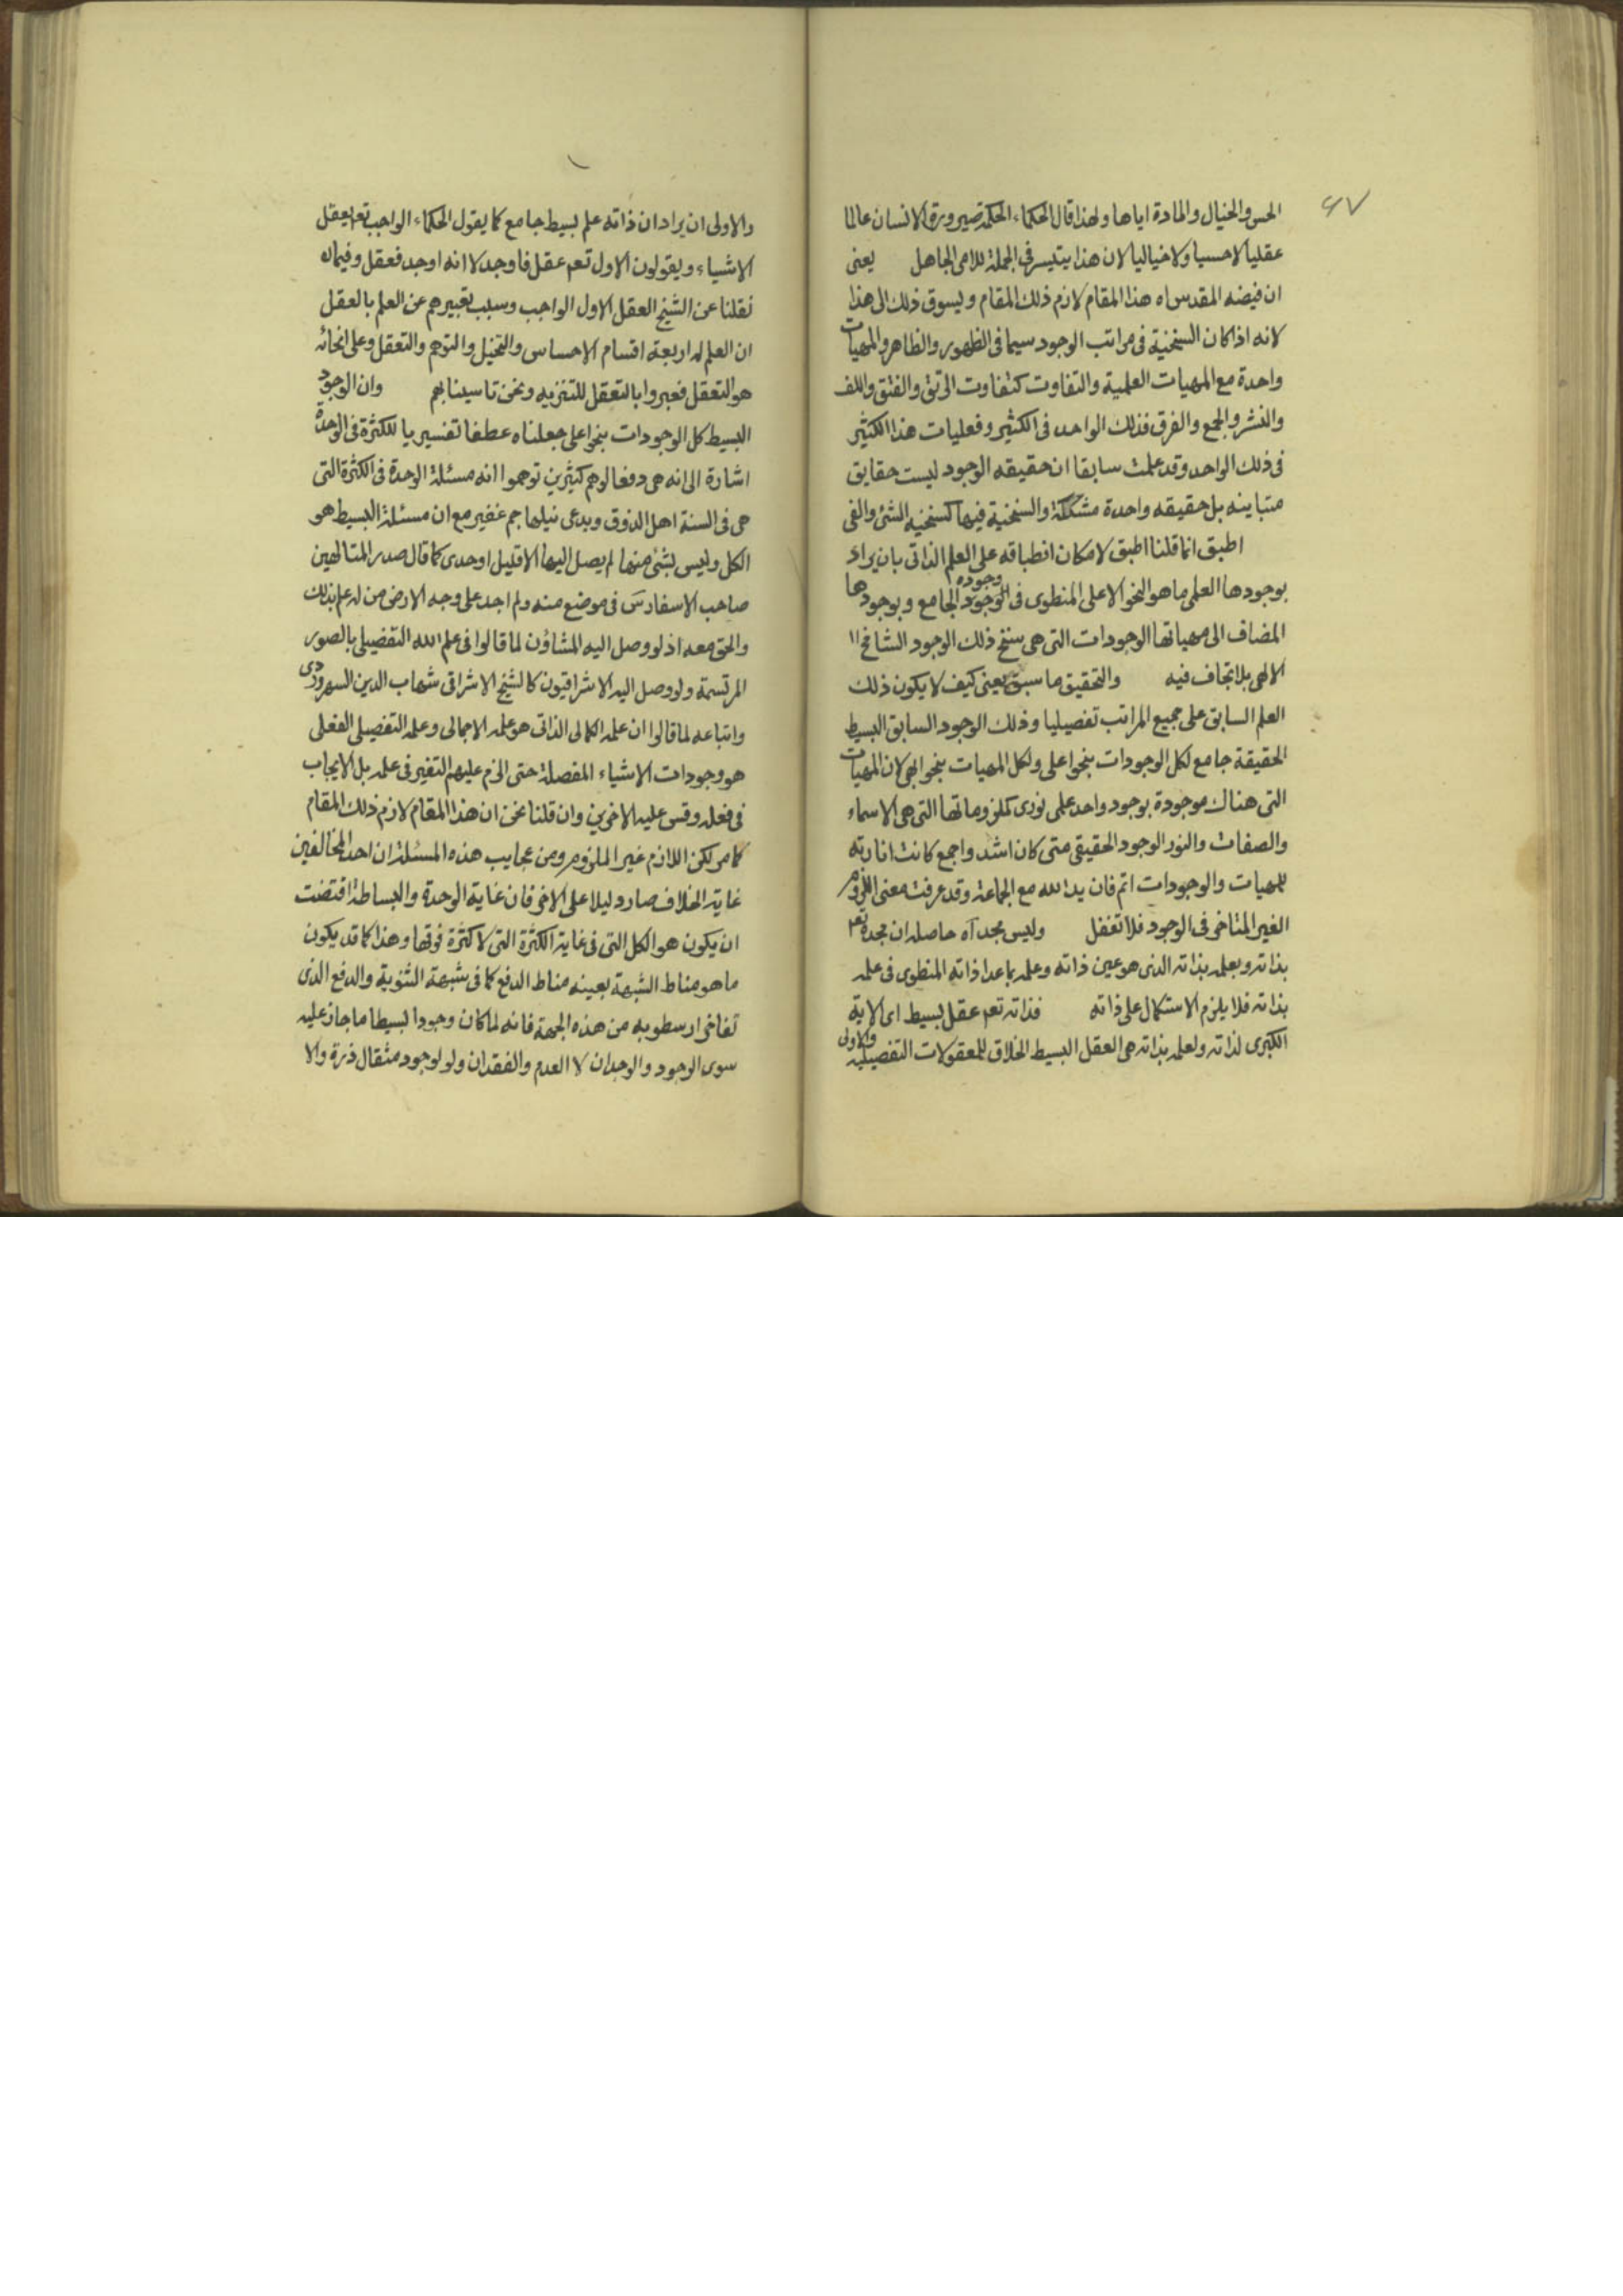 ۶۷
الحس والخیال والمادة ایاها ولهذا قال الحکماء الحکمة صیرورة الانسان عالما
عقلیا لا حسیا ولا خیالیا لان هذا یتیسر فی الجملة للامی الجاهل یعنی
ان فیضه المقدس اه هذا المقام لازم ذلك المقام ویسوق ذلك الی هذا
لانه اذا کان السنخیة فی مراتب الوجود سیما فی الظهور والظاهر والمهیات
واحدة مع المهیات العلمیة والتفاوت کتفاوت الرتق والفتق واللف
والنشر والجمع والفرق فذلك الواحد فی الکثیر وفعلیات هذا الکثیر
فی ذلك الواحد وقد علمت سابقا ان حقیقه الوجود لیست حقایق
متباینه بل حقیقه واحدة مشککة والسنخیة فیها کسنخیه الشئ والفی
اطبق انما قلنا اطبق لامکان انطباقه علی العلم الذاتی بان یراد
بوجودها العلمی ما هو النحو الاعلی المنطوی فی وجوده الوجود الجامع وبوجودها
المضاف الی مهیاتها الوجودات التی هی سنخ ذلك الوجود الشامخ
الالهی بلا تجاف فیه والتحقیق ما سبق یعنی کیف لا یکون ذلك
العلم السابق علی جمیع المراتب تفصیلیا وذلك الوجود السابق البسیط
الحقیقة جامع لکل الوجودات بنحو اعلی ولکل المهیات بنحو ابهی لان المهیات
التی هناك موجودة بوجود واحد علمی نوری کملزوماتها التی هی الاسماء
والصفات والنور الوجود الحقیقی متی کان اشد واجمع کانت انارته
للمهیات والوجودات اتم فان ید الله مع الجماعة وقد عرفت معنی اللزوم
الغیر المتاخر فی الوجود فلا تغفل ولیس مجد آه حاصله ان مجده تعه
بذاته وبعلمه بذاته الذی هو عین ذاته وعلمه بما عدا ذاته المنطوی فی علمه
بذاته فلا یلزم الاستکمال علی ذاته فذاته تعه عقل بسیط ای الایة
الکبری لذاته ولعلمه بذاته هی العقل البسیط الخلاق للمعقولات التفصیلیه
والاولی
والاولی ان یراد ان ذاته علم بسیط جامع کما یقول الحکماء الواجب تعه یعقل
الاشیاء ویقولون الاول تعه عقل فاوجد لا انه اوجد فعقل وفیما له
نقلنا عن الشیخ العقل الاول الواجب وسبب تعبیرهم عن العلم بالعقل
ان العلم له اربعة اقسام الاحساس والتخیل والتوهم والتعقل وعلی انحائه
هو التعقل فعبروا بالتعقل للتنزیه ونحن تاسینا بهم وان الوجود
البسیط کل الوجودات بنحو اعلی جعلناه عطفا تفسیریا للکثرة فی الوحدة
اشارة الی انه هی دفعا لوهم کثیرین توهموا انه مسئلة الوحدة فی الکثرة التی
هی فی السنة اهل الذوق ویدعی نیلها جم غفیر مع ان مسئلة البسیط هو
الکل ولیس بشئ منها لم یصل الیها الا قلیل اوحدی کما قال صدر المتالهین
صاحب الاسفار س فی موضع منه ولم اجد علی وجه الارض من له علم بذلك
والحق معه اذ لو وصل الیه المشاؤن لما قالوا فی علم الله التفصیلی بالصور
المرتسمة ولو وصل الیه الاشراقیون کالشیخ الاشراقی شهاب الدین السهروردی
واتباعه لما قالوا ان علمه الکمالی الذاتی هو علمه الاجمالی وعلمه التفصیلی الفعلی
هو وجودات الاشیاء المفصلة حتی الزم علیهم التغیر فی علمه بل الایجاب
فی فعله وقس علیه الاخرین وان قلنا نحن ان هذا المقام لازم ذلك المقام
کما مر لکن اللازم غیر الملزوم ومن عجایب هذه المسئلة ان احد المخالفین
غایة الخلاف صار دلیلا علی الاخر فان غایة الوحدة والبساطة اقتضت
ان یکون هو الکل التی فی غایة الکثرة التی لا کثرة فوقها وهذا کما قد یکون
ما هو مناط الشبهة بعینه مناط الدفع کما فی شبهة الثنویة والدفع الذی
تفاخر ارسطو به من هذه الجهة فانه لما کان وجودا بسیطا ما جاز علیه
سوی الوجود والوجدان لا العدم والفقدان ولو لوجود مثقال ذرة والا